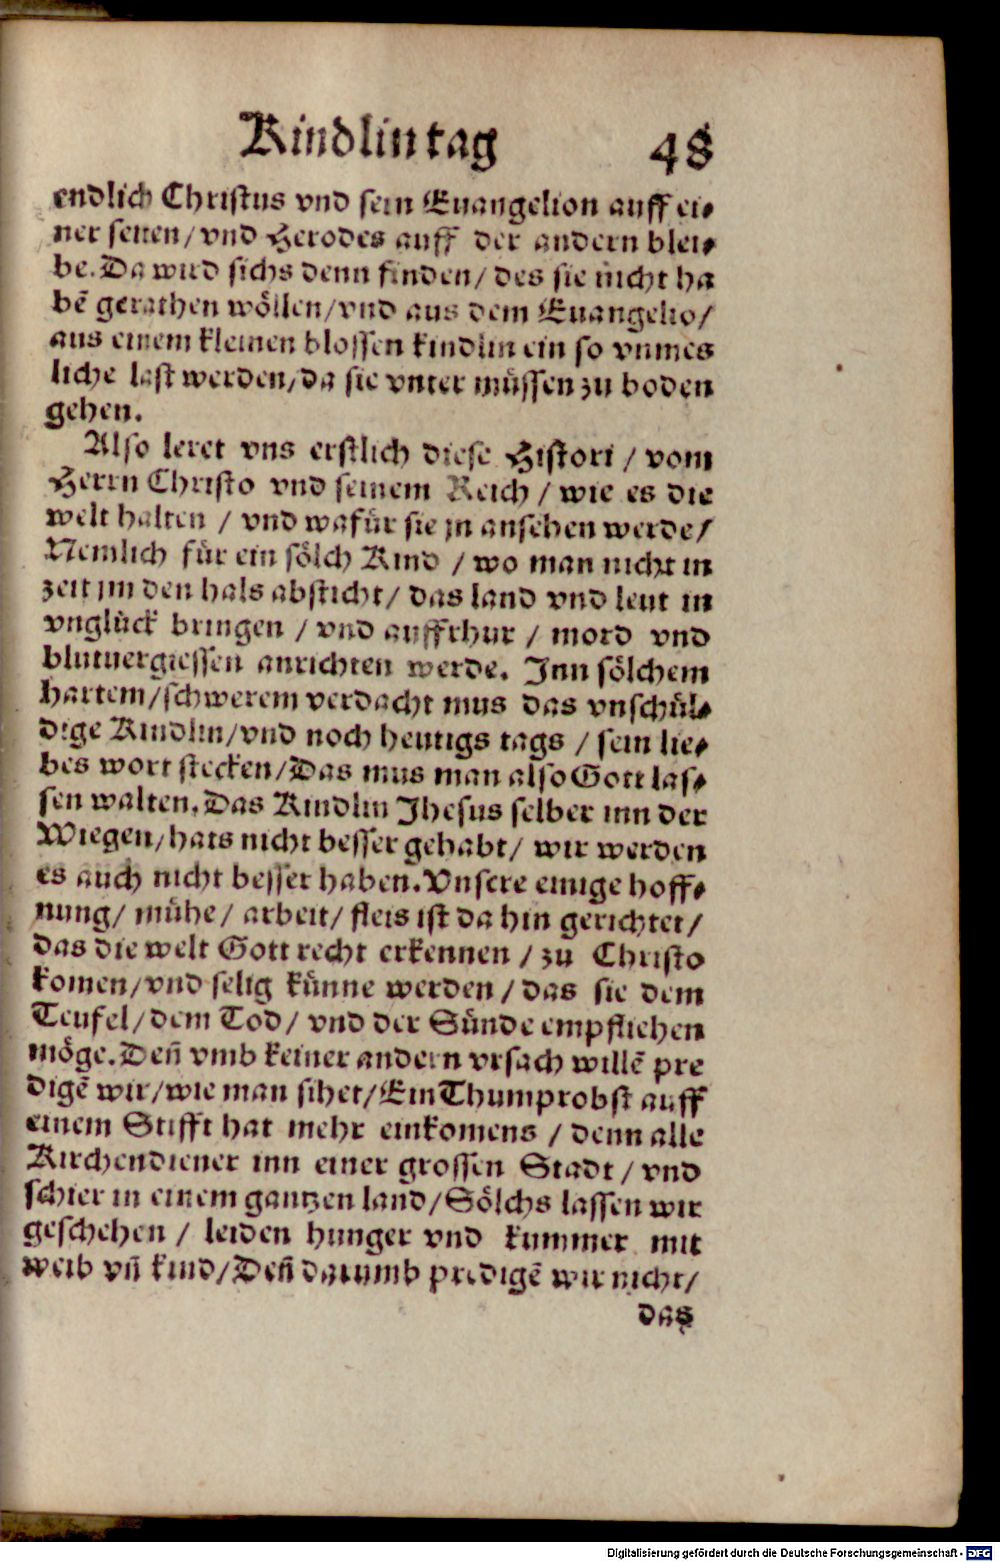 Kindlin tag 48
endlich Christus vnd sein Euangelion auff ei⸗
ner seiten/ vnd Herodes auff der andern blei⸗
be. Da wird sichs denn finden/ des sie nicht ha
bẽ gerathen wöllen/ vnd aus dem Euangelio/
aus einem kleinen blossen kindlin ein so vnmes
liche last werden/ da sie vnter müssen zu boden
gehen.
Also leret vns erstlich diese Histori / vom
Herrn Christo vnd seinem Reich / wie es die
welt halten / vnd wafür sie jn ansehen werde/
Nemlich für ein sölch Kind / wo man nicht in
zeit jm den hals absticht/ das land vnd leut in
vnglück bringen / vnd auffrhur / mord vnd
blutuergiessen anrichten werde. Inn sölchem
hartem/ schwerem verdacht mus das vnschül⸗
dige Kindlin/ vnd noch heutigs tags / sein lie⸗
bes wort stecken/ Das mus man also Gott las⸗
sen walten. Das Kindlin Jhesus selber inn der
Wiegen/ hats nicht besser gehabt/ wir werden
es auch nicht besser haben. Vnsere einige hoff⸗
nung/ mühe/ arbeit/ fleis ist da hin gerichtet/
das die welt Gott recht erkennen / zu Christo
komen/ vnd selig künne werden / das sie dem
Teufel/ dem Tod/ vnd der Sünde empfliehen
möge. Deñ vmb keiner andern vrsach willẽ pre
digẽ wir/ wie man sihet/ Ein Thumprobst auff
einem Stifft hat mehr einkomens / denn alle
Kirchendiener inn einer grossen Stadt / vnd
schier in einem gantzen land/ Sölchs lassen wir
geschehen / leiden hunger vnd kummer mit
weib vñ kind/ Deñ darumb predigẽ wir nicht/
das
Digitalisierung gefördert durch die Deutsche Forschungsgemeinschaft - DFG